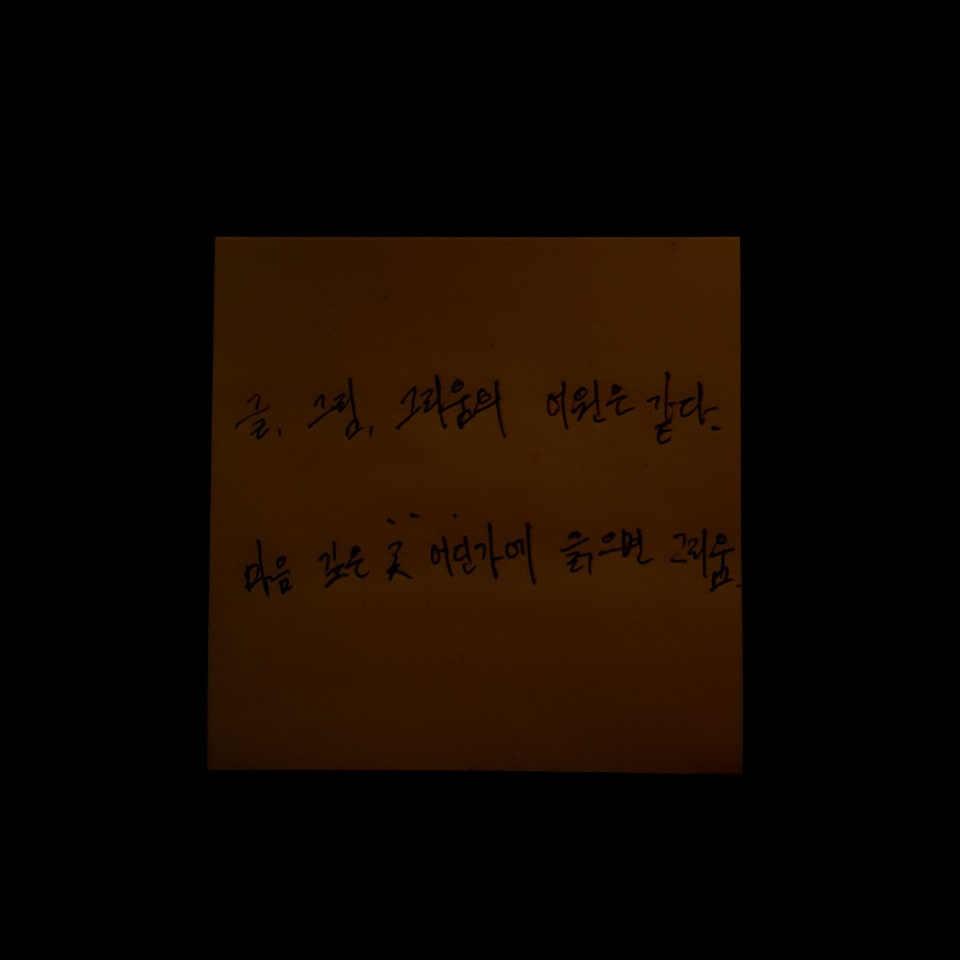 글, 그림, 그리움의 어원은 같다.
마음 깊은 곳 어딘가에 긁으면 그리움.